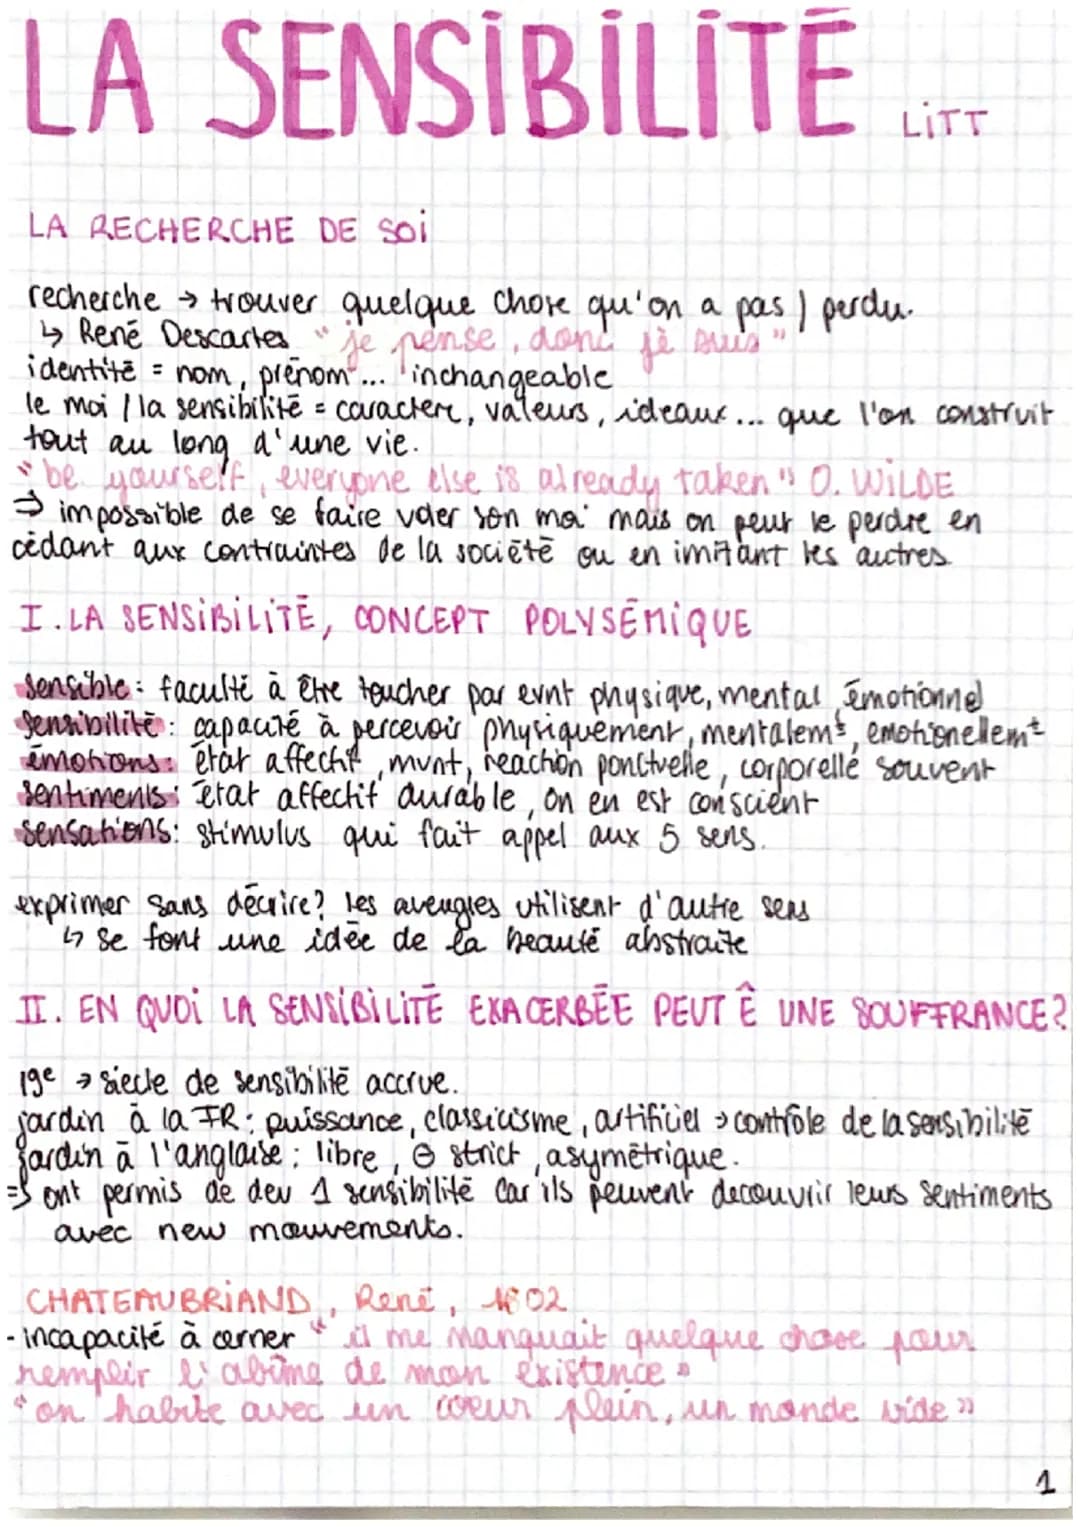 LA SENSIBILITÉ LITT
LA RECHERCHE DE SOI
recherche → trouver quelque chose qu'on a pas / perdu.
↳ René Descartes "je pense, donc je suis"
identité = nom, prénom... inchangeable
le moi / la sensibilité = caractere, valeurs, ideaux... que l'on construit
tout au long d'une vie.
"be yourself, everyone else is already taken" O. WILDE
⇒ impossible de se faire voler son moi mais on peut le perdre en
cédant aux contraintes de la société ou en imitant les autres
I. LA SENSIBILITÉ, CONCEPT POLYSÉMIQUE
sensible : faculté à être toucher par evnt physique, mental, émotionnel
sensibilité : capacité à percevoir physiquement, mentalemt, emotionellemt
émotions : état affectif, mvnt, réaction ponctuelle, corporelle souvent
sentiments : état affectif durable, on en est conscient
sensations : stimulus qui fait appel aux 5 sens.
exprimer sans décrire? les aveugles utilisent d'autre sens
↳ se font une idée de la beauté abstraite
II. EN QUOI LA SENSIBILITÉ EXACERBÉE PEUT Ê UNE SOUFFRANCE?
19e → siecle de sensibilité accrue.
jardin à la FR : puissance, classicisme, artificiel → contrôle de la sensibilité
jardin à l'anglaise : libre, ⊖ strict, asymétrique.
⇒ ont permis de dev 1 sensibilité car ils peuvent decouvrir leurs sentiments
avec new mouvements.
CHATEAUBRIAND, René, 1802
- incapacité à cerner "il me manquait quelque chose pour
remplir l'abîme de mon existence"
"on habite avec un coeur plein, un monde vide"
1